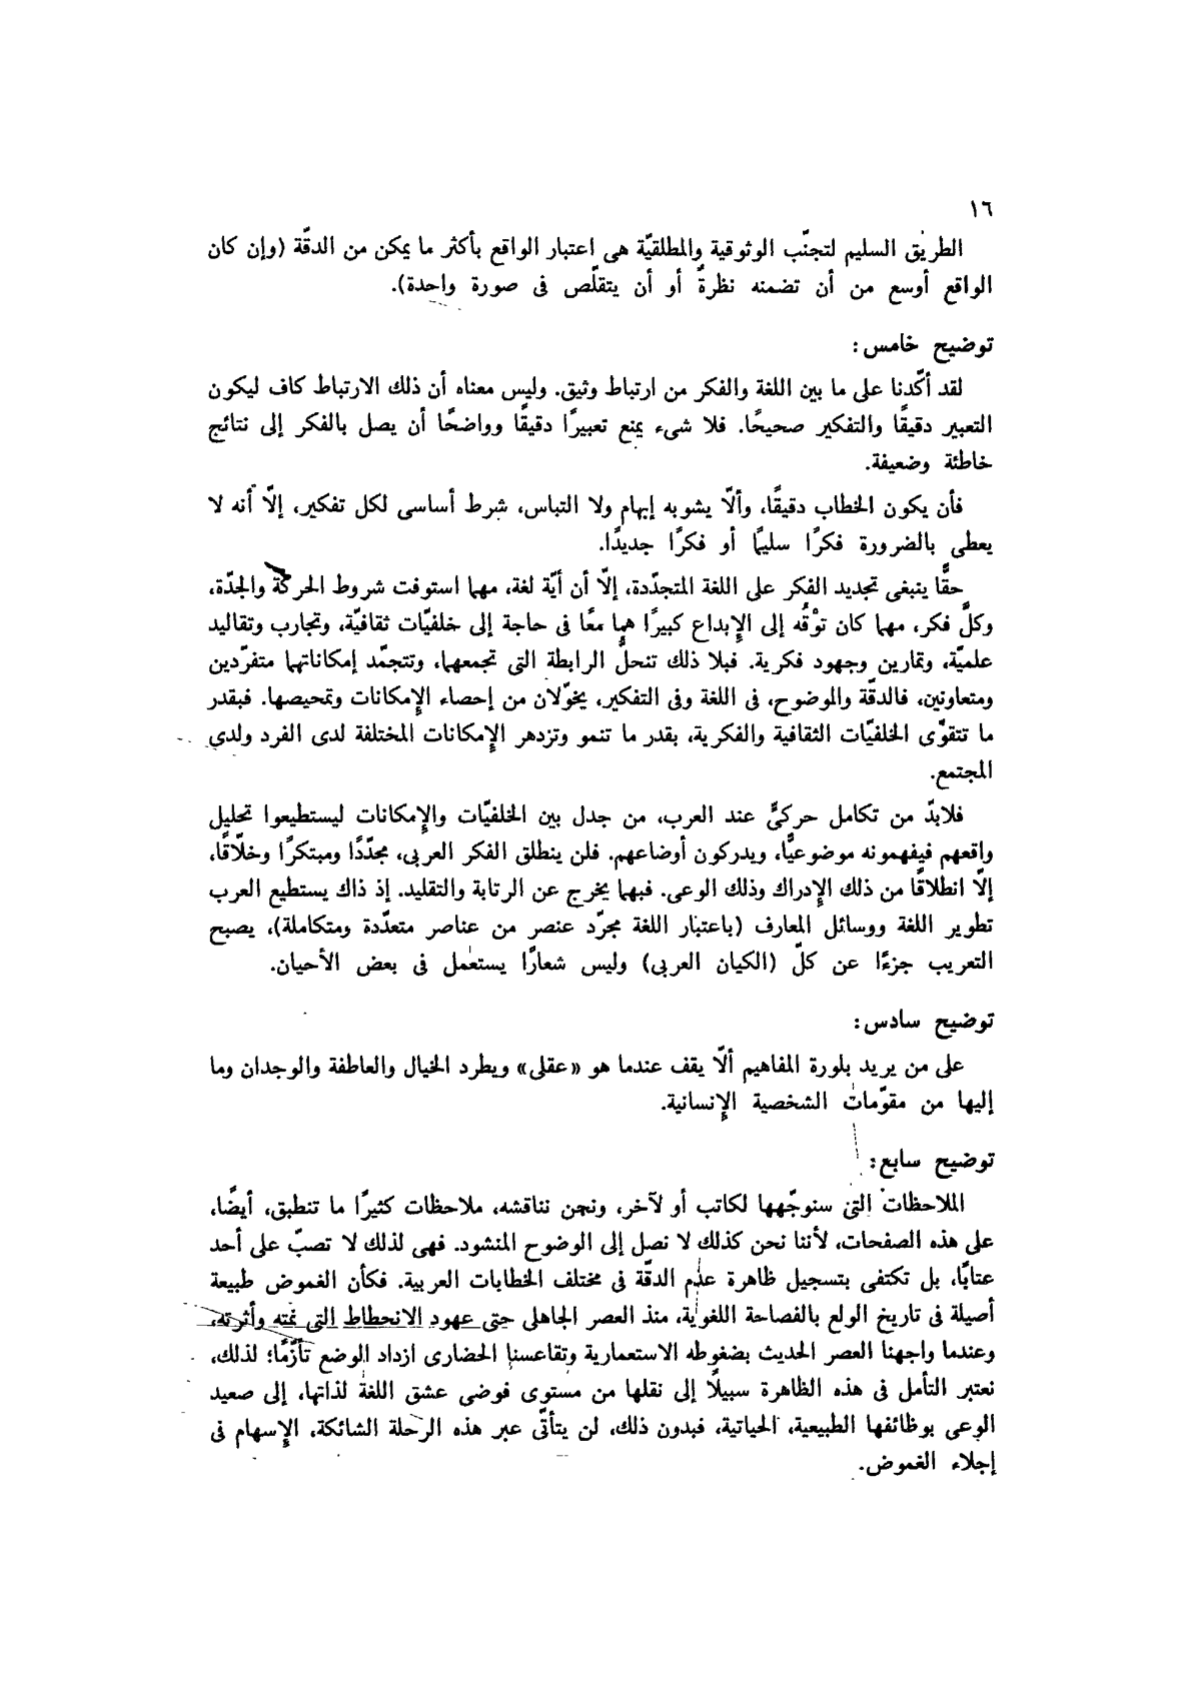 ١٦
الطريق السليم لتجنّب الوثوقية والمطلقيّة هى اعتبار الواقع بأكثر ما يمكن من الدقّة (وإن كان
الواقع أوسع من أن تضمنه نظرةٌ أو أن يتقلّص فى صورة واحدة).
توضيح خامس:
لقد أكّدنا على ما بين اللغة والفكر من ارتباط وثيق. وليس معناه أن ذلك الارتباط كاف ليكون
التعبير دقيقًا والتفكير صحيحًا. فلا شىء يمنع تعبيرًا دقيقًا وواضحًا أن يصل بالفكر إلى نتائج
خاطئة وضعيفة.
فأن يكون الخطاب دقيقًا، وألّا يشوبه إبهام ولا التباس، شرط أساسى لكل تفكير، إلّا أنه لا
يعطى بالضرورة فكرًا سليمًا أو فكرًا جديدًا.
حقًّا ينبغى تجديد الفكر على اللغة المتجدّدة، إلّا أن أيّة لغة، مهما استوفت شروط الحركة والجدّة،
وكلَّ فكر، مهما كان توْقُه إلى الإبداع كبيرًا هما معًا فى حاجة إلى خلفيّات ثقافيّة، وتجارب وتقاليد
علميّة، وتمارين وجهود فكرية. فبلا ذلك تنحلُّ الرابطة التى تجمعهما، وتتجمّد إمكاناتهما متفرّدين
ومتعاونين، فالدقّة والموضوح، فى اللغة وفى التفكير، يخوّلان من إحصاء الإمكانات وتمحيصها. فبقدر
ما تتقوّى الخلفيّات الثقافية والفكرية، بقدر ما تنمو وتزدهر الإمكانات المختلفة لدى الفرد ولدى
المجتمع.
فلابدّ من تكامل حركىٍّ عند العرب، من جدل بين الخلفيّات والإمكانات ليستطيعوا تحليل
واقعهم فيفهمونه موضوعيًّا، ويدركون أوضاعهم. فلن ينطلق الفكر العربى، مجدّدًا ومبتكرًا وخلّاقًا،
إلّا انطلاقًا من ذلك الإدراك وذلك الوعى. فبهما يخرج عن الرتابة والتقليد. إذ ذاك يستطيع العرب
تطوير اللغة ووسائل المعارف (باعتبار اللغة مجرّد عنصر من عناصر متعدّدة ومتكاملة)، يصبح
التعريب جزءًا عن كلّ (الكيان العربى) وليس شعارًا يستعمل فى بعض الأحيان.
توضيح سادس:
على من يريد بلورة المفاهيم ألّا يقف عندما هو «عقلى» ويطرد الخيال والعاطفة والوجدان وما
إليها من مقوّمات الشخصية الإنسانية.
توضيح سابع:
الملاحظات التى سنوجّهها لكاتب أو لآخر، ونحن نناقشه، ملاحظات كثيرًا ما تنطبق، أيضًا،
على هذه الصفحات، لأننا نحن كذلك لا نصل إلى الوضوح المنشود. فهى لذلك لا تصبّ على أحد
عتابًا، بل تكتفى بتسجيل ظاهرة عدم الدقّة فى مختلف الخطابات العربية. فكأن الغموض طبيعة
أصيلة فى تاريخ الولع بالفصاحة اللغوية، منذ العصر الجاهلى حتى عهود الانحطاط التى نمّته وأثرته.
وعندما واجهنا العصر الحديث بضغوطه الاستعمارية وتقاعسنا الحضارى ازداد الوضع تأزّمًا؛ لذلك،
نعتبر التأمل فى هذه الظاهرة سبيلًا إلى نقلها من مستوى فوضى عشق اللغة لذاتها، إلى صعيد
الوعى بوظائفها الطبيعية، الحياتية، فبدون ذلك، لن يتأتّى عبر هذه الرحلة الشائكة، الإسهام فى
إجلاء الغموض.